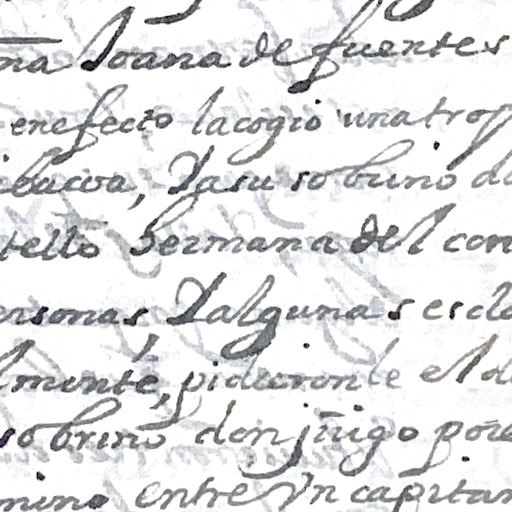 na Joana de fuentes
enefecto la cogio una trop
ibacoa, Yasu sobrino do
tello hermana del con
ersonas, Yalgunas escla
lmente, pidieronle el d
sobrino don jñigo pore
mino entre Vn capitan